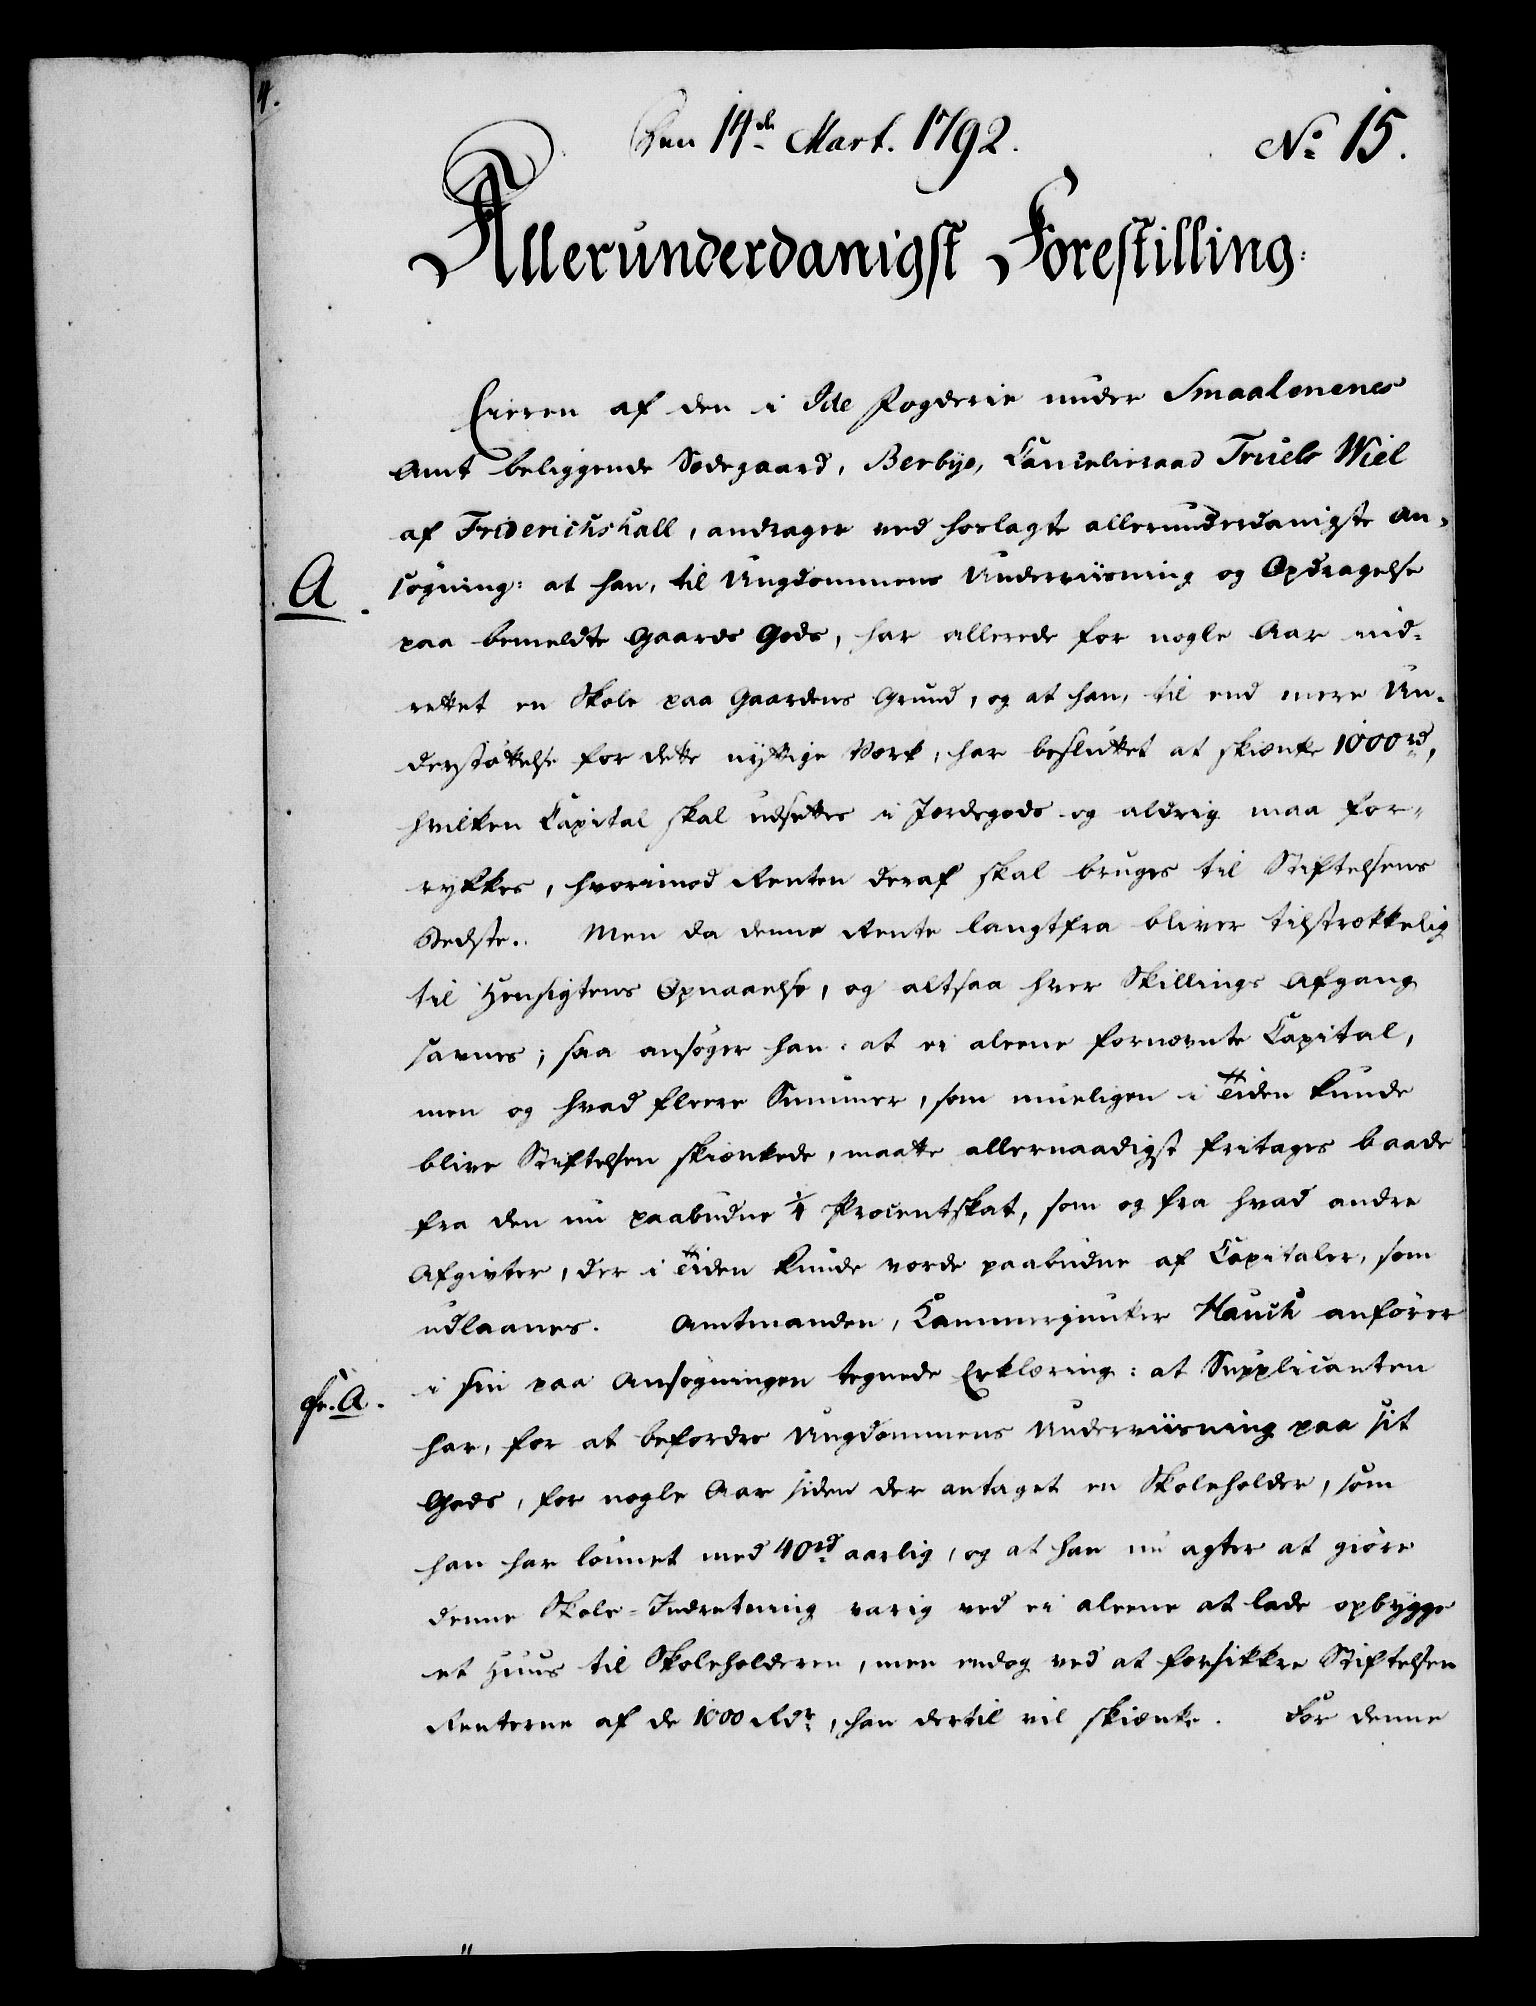 4.
Den 14de Mart. 1792.
No 15.
Allerunderdanigst Forestilling:
Eieren af den i Ide Fogderie under Smaalenenes
Amt beliggende Sædegaard, Berbye, Cancelieraad Truels Wiel
af Friderichshall, andrager ved hoslagte allerunderdanigste An-
A.
søgning: at han, til Ungdommens Underviisning og Opdragelse
paa bemeldte Gaards Gods, har allerede for nogle Aar ind-
rettet en Skole paa Gaardens Grund, og at han, til end mere Un-
derstøttelse for dette nyttige Værk, har besluttet at skienke 1000 rd,
hvilken Capital skal udsettes i Jordegods og aldrig maa for-
rykkes, hvorimod Renten deraf skal bruges til Stiftelsens
Bedste. Men da denne Rente langtfra bliver tilstrækkelig
til Hensigtens Opnaaelse, og altsaa hver Skillings Afgang
savnes; saa ansøger han: at ei aleene fornævnte Capital,
men og hvad fleere Summer, som mueligen i Tiden kunde
blive Stiftelsen skienkede, maatte allernaadigst fritages baade
fra den nu paabudne 1/4 Procentskat, som og fra hvad andre
Afgivter, der i Tiden kunde vorde paabudne af Capitaler, som
udlaanes. Amtmanden, Kammerjunker Hauch anfører
fr. A.
i sin paa Ansøgningen tegnede Erklæring: at Supplicanten
har, for at befordre Ungdommens Underviisning paa sit
Gods, for nogle Aar siden der antaget en Skoleholder, som
han har lønnet med 40 rd aarlig, og at han nu agter at giøre
denne Skole-Indretning varig ved ei aleene at lade opbygge
et Huus til Skoleholderen, men endog ved at forsikkre Stiftelsen
Renterne af de 1000 Rdr, han dertil vil skienke. For denne